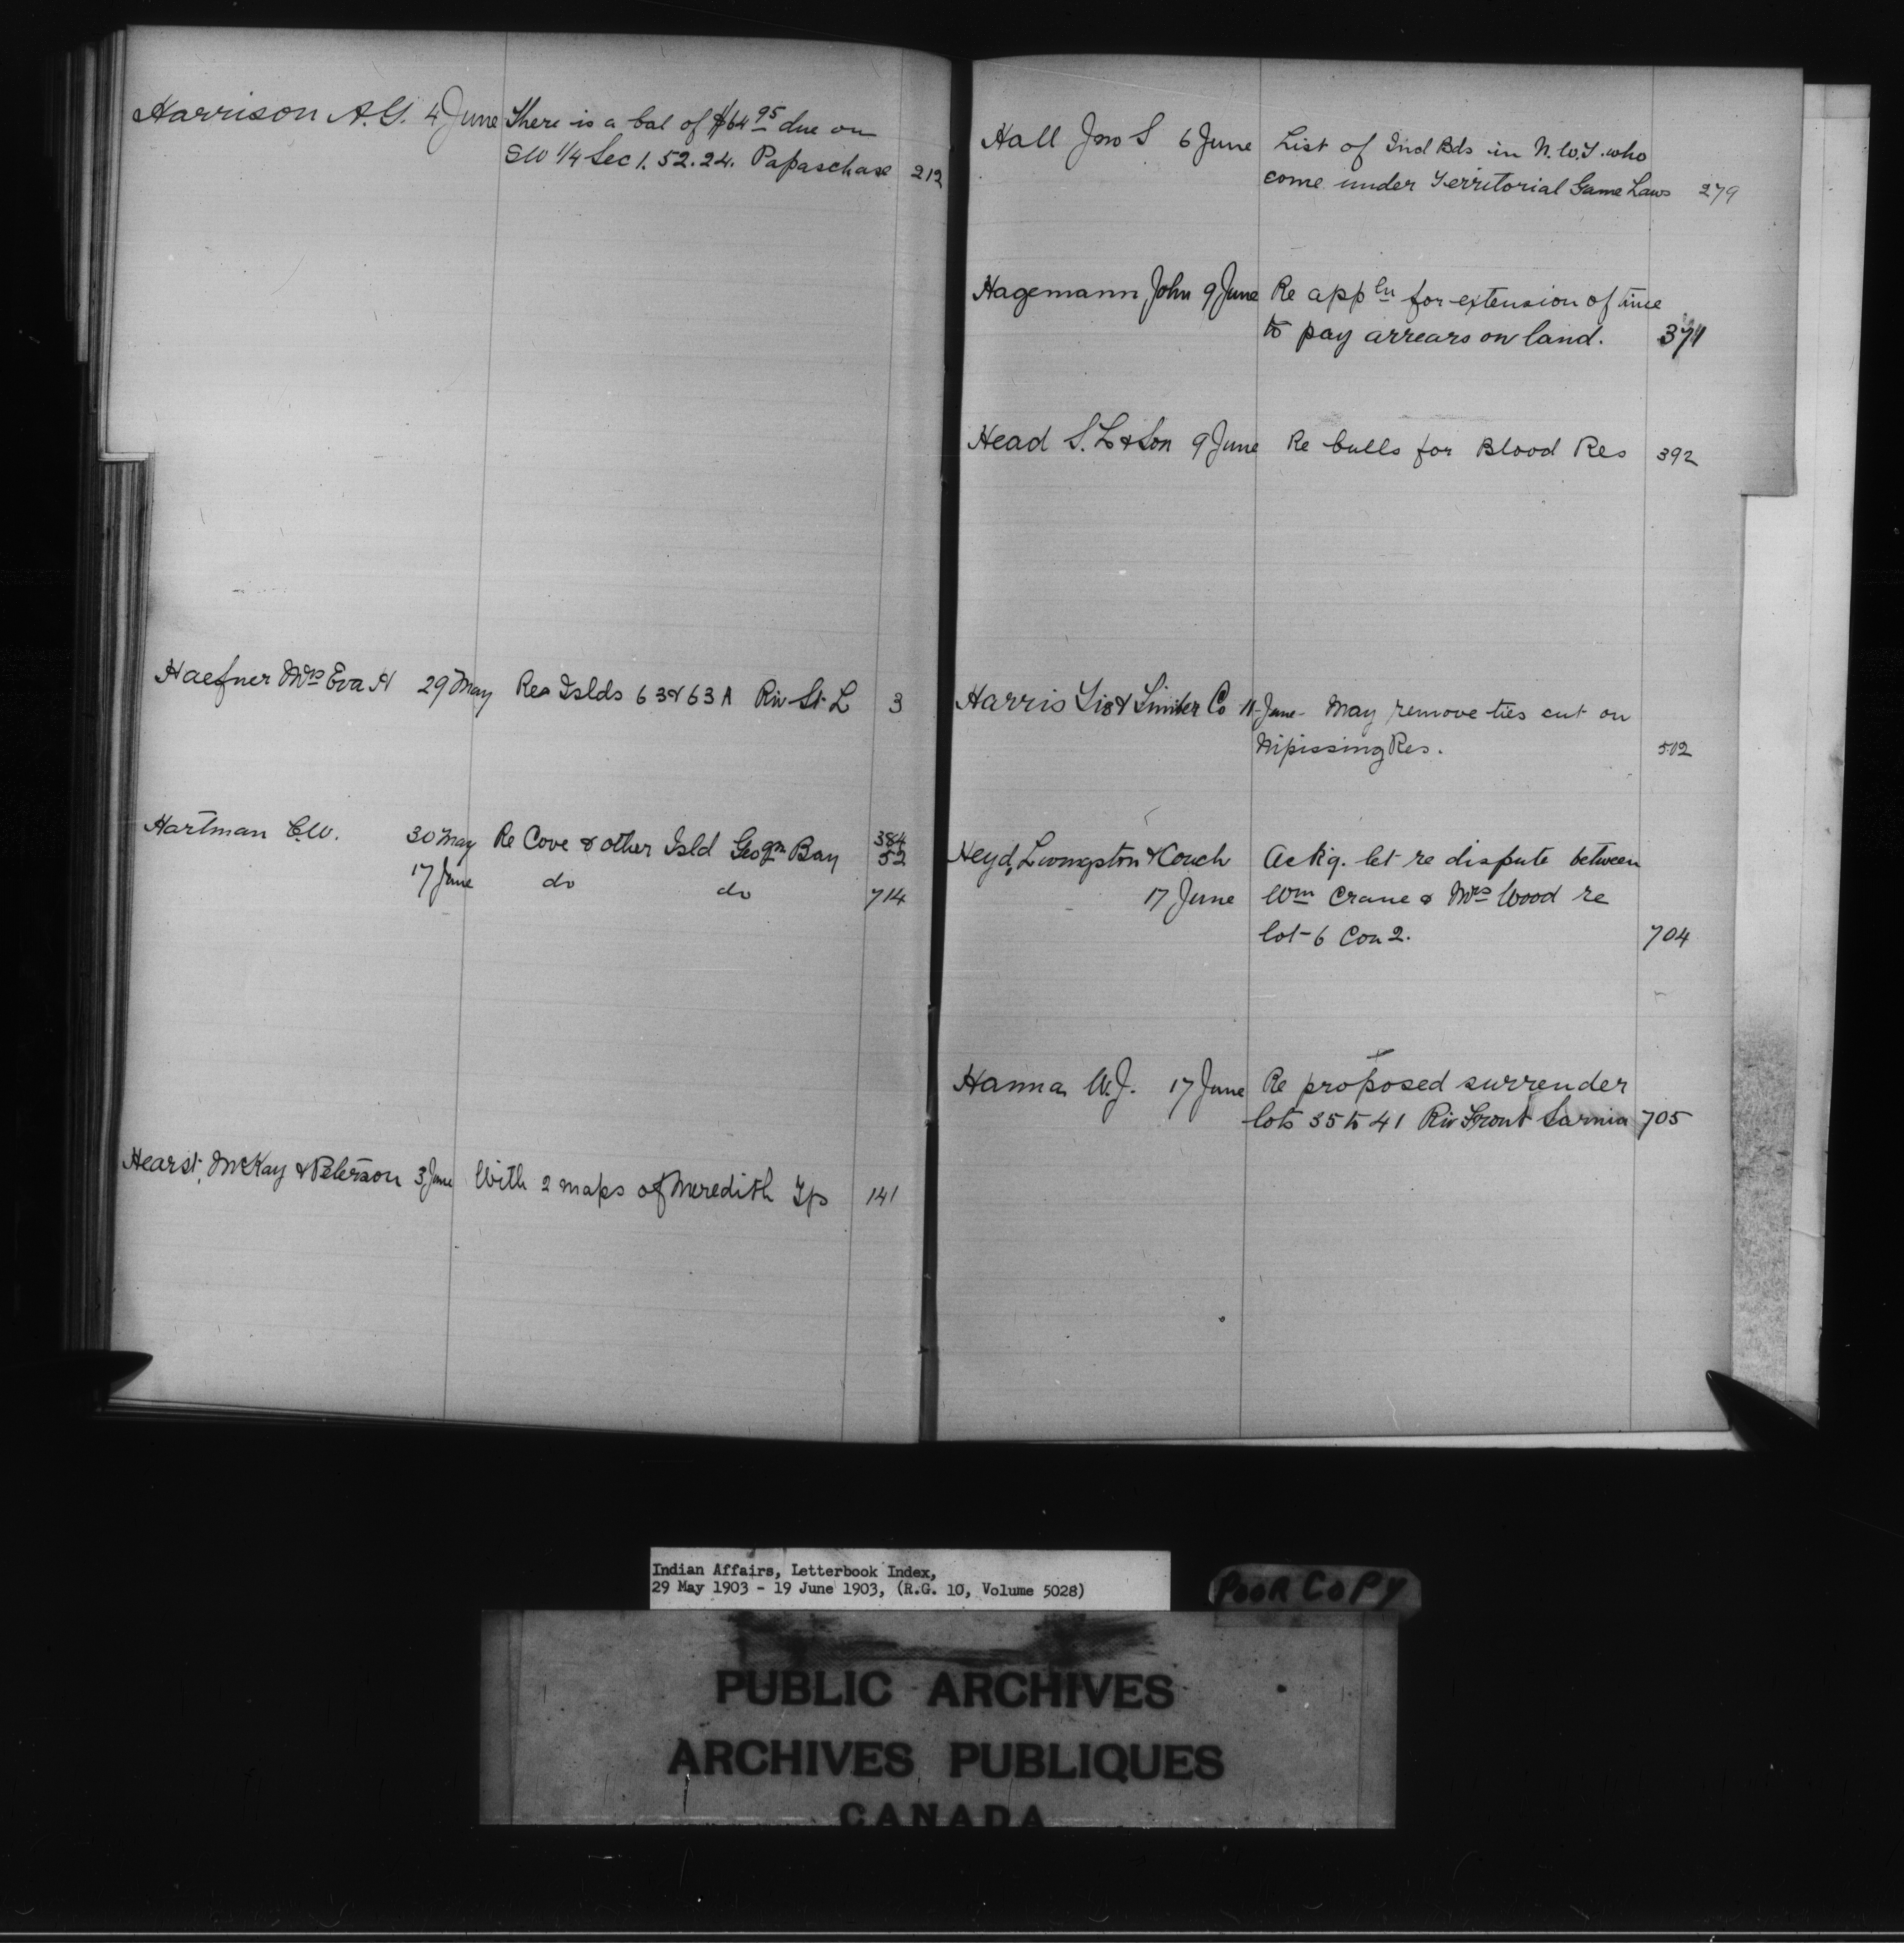 Harrison A.G. 4 June There is a bal of $64 95 due on
SW 1/4 Sec 1. 52. 24. Papaschase 212
Haefner Mrs Eva H 29 May Res Islds 63 & 63A Riv St. L 3
Hartman C.W. 30 May Re Cove & other Isld Geogn Bay 384
52
17 June do do 714
Hearst, McKay & Peterson 3 June With 2 maps of Meredith Tp 141
Hall Jno S 6 June List of Ind Bds in N.W.T. who
come under Territorial Game Laws 279
Hagemann John 9 June Re appln for extension of time
to pay arrears on land. 371
Head S. L & Son 9 June Re bulls for Blood Res 392
Harris Tie & Timber Co 11 June May remove ties cut on
Nipissing Res. 502
Heyd, Livingston & Couch Ackg. let re dispute between
17 June Wm Crane & Mrs Wood re
lot 6 Con 2. 704
Hanna W.J. 17 June Re proposed surrender
lots 35 to 41 Riv Front Sarnia 705
Indian Affairs, Letterbook Index,
29 May 1903 - 19 June 1903, (R.G. 10, Volume 5028)
POOR COPY
PUBLIC ARCHIVES
ARCHIVES PUBLIQUES
CANADA